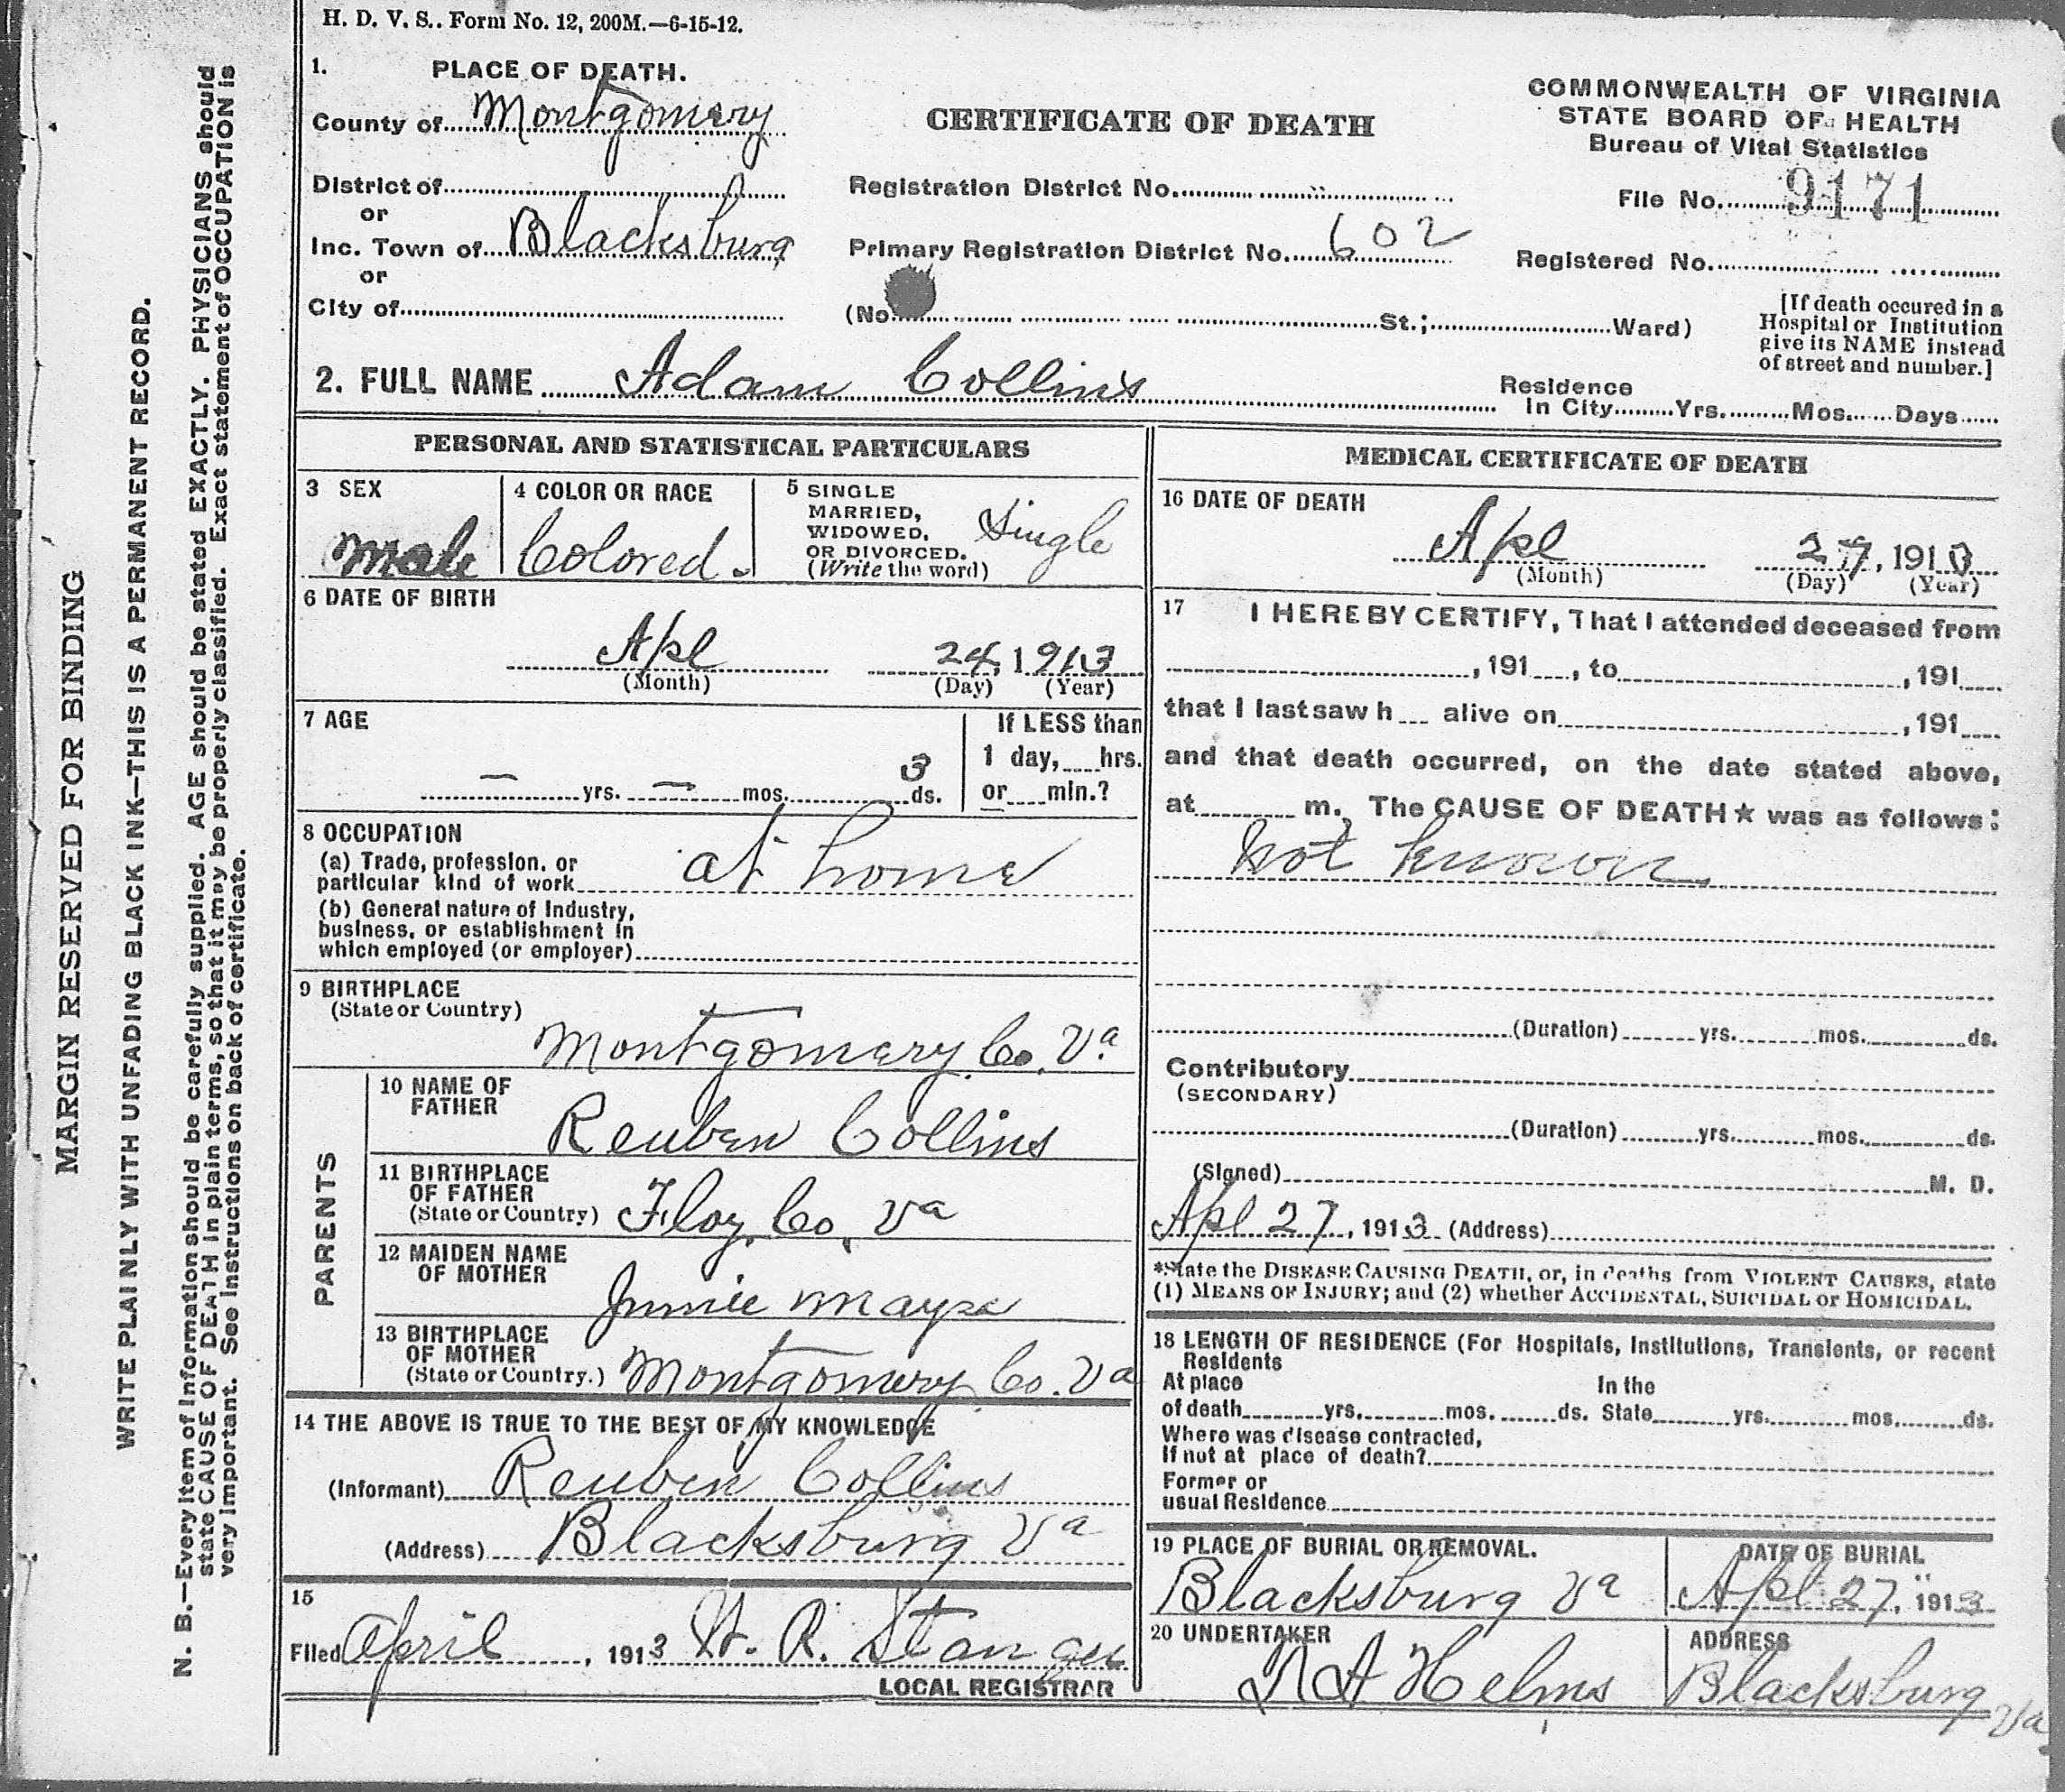 H. D. V. S.. Form No. 12, 200M.—6-15-12.
MARGIN RESERVED FOR BINDING
WRITE PLAINLY WITH UNFADING BLACK INK—THIS IS A PERMANENT RECORD.
N. B.—Every item of information should be carefully supplied. AGE should be stated EXACTLY. PHYSICIANS should
state CAUSE OF DEATH in plain terms, so that it may be properly classified. Exact statement of OCCUPATION is
very important. See instructions on back of certificate.
1. PLACE OF DEATH.
County of Montgomery
District of
or
Inc. Town of Blacksburg
or
City of
CERTIFICATE OF DEATH
Registration District No.
Primary Registration District No. 602
(No. St.; Ward)
COMMONWEALTH OF VIRGINIA
STATE BOARD OF HEALTH
Bureau of Vital Statistics
File No. 9171
Registered No.
[If death occured in a
Hospital or Institution
give its NAME instead
of street and number.]
2. FULL NAME Adam Collins
Residence
In City Yrs. Mos. Days
PERSONAL AND STATISTICAL PARTICULARS
3 SEX
Male
4 COLOR OR RACE
Colored.
5 SINGLE
MARRIED,
WIDOWED,
OR DIVORCED.
(Write the word)
Single
6 DATE OF BIRTH
Apl 24, 1913
(Month) (Day) (Year)
7 AGE
— yrs. — mos. 3 ds.
If LESS than
1 day, hrs.
or min.?
8 OCCUPATION
(a) Trade, profession, or
particular kind of work at home
(b) General nature of Industry,
business, or establishment in
which employed (or employer)
9 BIRTHPLACE
(State or Country)
Montgomery Co. Va
PARENTS
10 NAME OF
FATHER
Reuben Collins
11 BIRTHPLACE
OF FATHER
(State or Country) Floy. Co. Va
12 MAIDEN NAME
OF MOTHER
13 BIRTHPLACE
OF MOTHER
(State or Country.) Montgomery Co. Va
14 THE ABOVE IS TRUE TO THE BEST OF MY KNOWLEDGE
(Informant) Reuben Collins
(Address) Blacksburg Va
15
Filed April, 1913
LOCAL REGISTRAR
MEDICAL CERTIFICATE OF DEATH
16 DATE OF DEATH
Apl 27, 1913
(Month) (Day) (Year)
17 I HEREBY CERTIFY, That I attended deceased from
, 191 , to , 191
that I last saw h alive on , 191
and that death occurred, on the date stated above,
at m. The CAUSE OF DEATH★ was as follows:
Not known
(Duration) yrs. mos. ds.
Contributory
(SECONDARY)
(Duration) yrs. mos. ds.
(Signed) M. D.
Apl 27, 1913 (Address)
*State the DISEASE CAUSING DEATH, or, in deaths from VIOLENT CAUSES, state
(1) MEANS OF INJURY; and (2) whether ACCIDENTAL, SUICIDAL or HOMICIDAL.
18 LENGTH OF RESIDENCE (For Hospitals, Institutions, Transients, or recent
Residents
At place In the
of death yrs. mos. ds. State yrs. mos. ds.
Where was disease contracted,
If not at place of death?
Former or
usual Residence
19 PLACE OF BURIAL OR REMOVAL.
Blacksburg Va
DATE OF BURIAL
Apl 27, 1913
20 UNDERTAKER
Helms
ADDRESS
Blacksburg Va